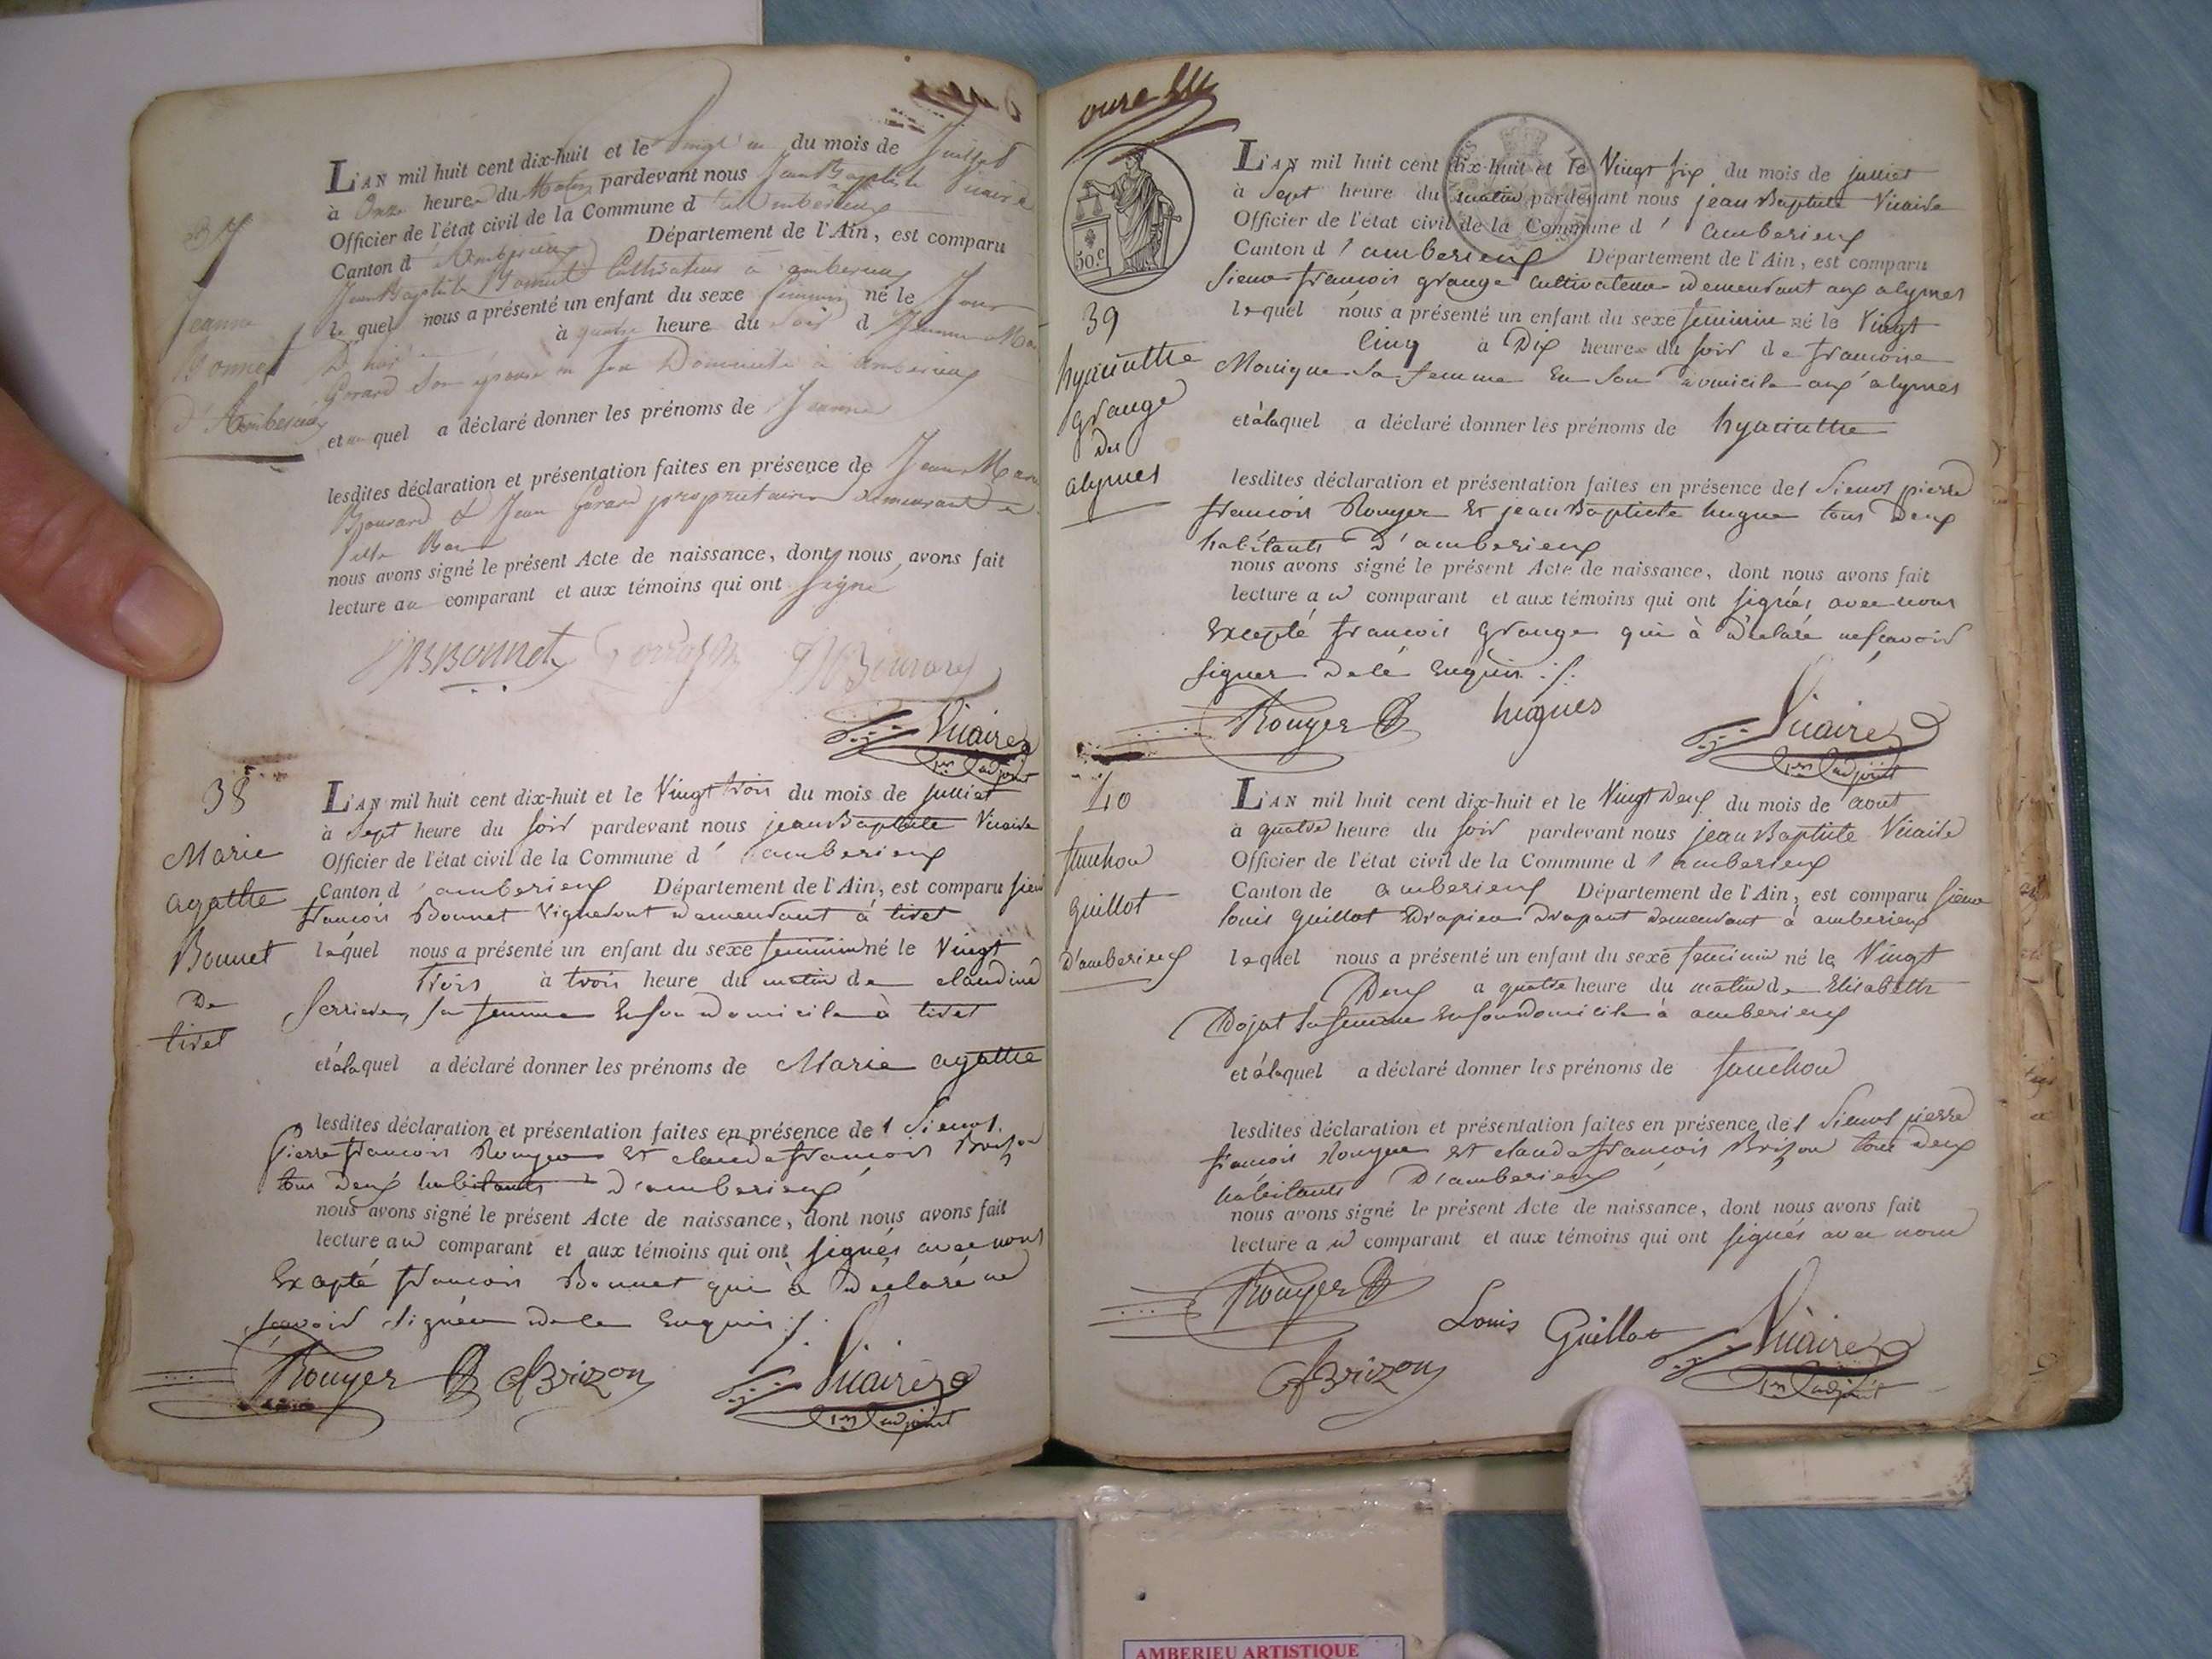 37
Jeanne
Bonnet
d'Amberieux
L'AN mil huit cent dix-huit et le Vingt un du mois de Juillet
à Onze heure du Matin pardevant nous Jean Baptiste Vicaire
Officier de l'état civil de la Commune d'Amberieux
Canton d'Amberieux Département de l'Ain, est comparu
Jean Baptiste Bonnet Cultivateur à amberieux
lequel nous a présenté un enfant du sexe féminin né le Jour
D'hier à quatre heure du Soir d Jeanne
Gorard Son épouse en Son Domicile à amberieux
et quel a déclaré donner les prénoms de Jeanne
lesdites déclaration et présentation faites en présence de Jean
& Jean Gorard propriétaires demeurant
nous avons signé le présent Acte de naissance, dont nous avons fait
lecture au comparant et aux témoins qui ont Signé
JB Bonnet
Vicaire
1er adjoint
38
Marie
agathe
Bonnet
De
tiret
L'AN mil huit cent dix-huit et le Vingt trois du mois de julliet
à Sept heure du soir pardevant nous jean Baptiste Vicaire
Officier de l'état civil de la Commune d' amberieux
Canton d' amberieux Département de l'Ain, est comparu sieur
francois Bonnet Vigneront demeurant à tiret
lequel nous a présenté un enfant du sexe feminin né le Vingt
trois à trois heure du matin de claudine
serriere, sa femme En son domicile à tiret
et à laquel a déclaré donner les prénoms de Marie agathe
lesdites déclaration et présentation faites en présence des Sieurs
Pierre francois Rouyer Et claude francois Brizon
tous deux habitants D'amberieux
nous avons signé le présent Acte de naissance, dont nous avons fait
lecture au comparant et aux témoins qui ont signés avec nous
Excepté francois Bonnet qui à Déclaré ne
scavoir signer De le Enquis ./.
Rouyer
cfBrizon
Vicaire
1er adjoint
onze
50 c
39
hyacinthe
grange
des
alymes
L'AN mil huit cent dix-huit et le Vingt six du mois de julliet
à Sept heure du matin pardevant nous jean Baptiste Vicaire
Officier de l'état civil de la Commune d' amberieux
Canton d' amberieux Département de l'Ain, est comparu
Sieur francois grange cultivateur demeurant aux alymes
lequel nous a présenté un enfant du sexe feminin né le Vingt
Cinq à Dix heures du soir de francoise
Monique Sa femme En Son domicile aux alymes
et à laquel a déclaré donner les prénoms de hyacinthe
lesdites déclaration et présentation faites en présence des Sieurs pierre
francois Rouyer Et jean Baptiste hugue tous Deux
habitants D'amberieux
nous avons signé le présent Acte de naissance, dont nous avons fait
lecture au comparant et aux témoins qui ont signés avec nous
Excepté francois grange qui à déclaré ne scavoir
signer De lé Enquis ./.
Rouyer
hugues
Vicaire
1er adjoint
40
fanchon
guillot
D'amberieux
L'AN mil huit cent dix-huit et le Vingt Deux du mois de aout
à quatre heure du soir pardevant nous jean Baptiste Vicaire
Officier de l'état civil de la Commune d' amberieux
Canton de amberieux Département de l'Ain, est comparu sieur
louis guillot Drapier Drapant demeurant à amberieux
lequel nous a présenté un enfant du sexe feminin né le Vingt
Deux à quatre heure du matin de Elisabeth
Dojat Sa femme En son Domicile à amberieux
et à laquel a déclaré donner les prénoms de fanchon
lesdites déclaration et présentation faites en présence des Sieurs pierre
francois Rouyer Et claude francois Brizon tous deux
habitants D'amberieux
nous avons signé le présent Acte de naissance, dont nous avons fait
lecture au comparant et aux témoins qui ont signés avec nous
Rouyer
Louis Guillot
Vicaire
1er adjoint
cfBrizon
AMBERIEU ARTISTIQUE